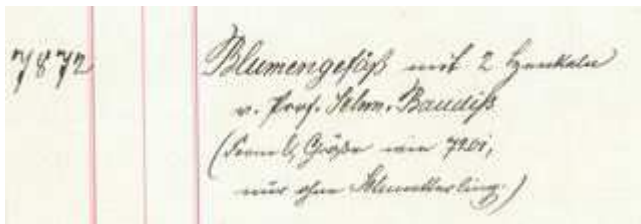 7872 Blumengefäß mit 2 Henkeln
v. Prof. Schm. Baudiß
(Form u. Größe wie 7201,
nur ohne Schmetterling.)